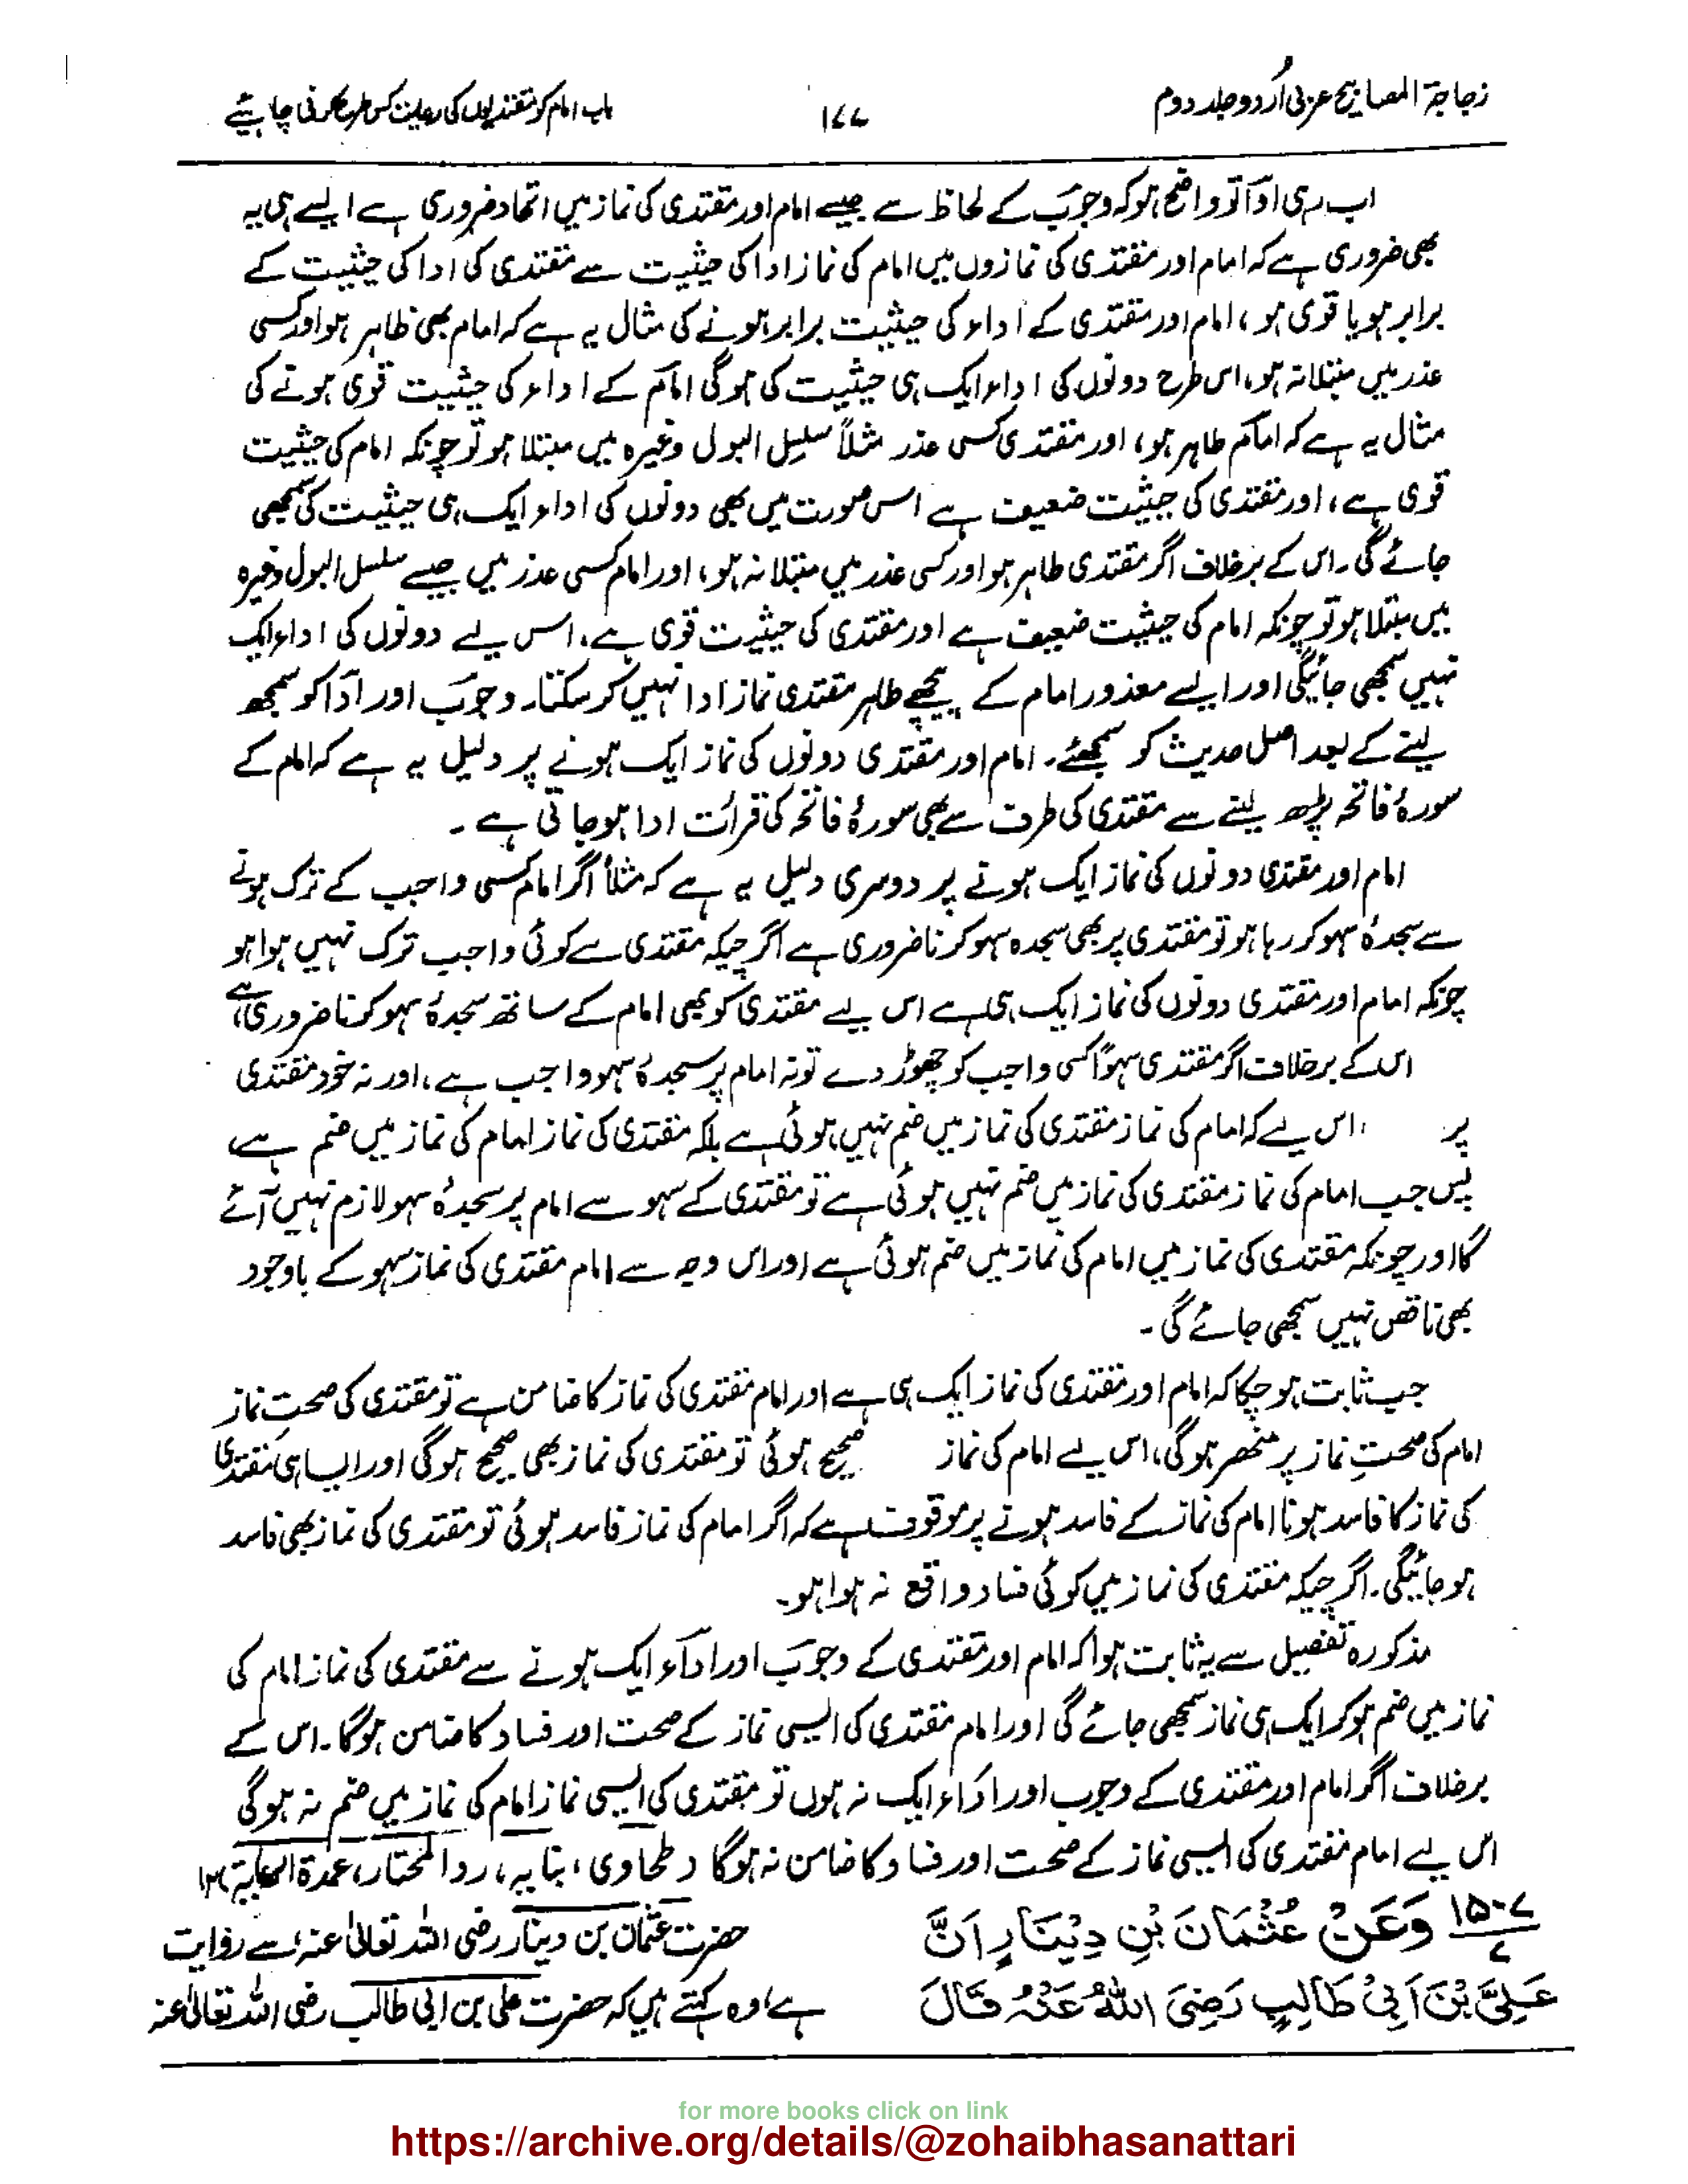 زجاجۃ المصابیح عربی اُردو جلد دوم
۱۷۷
باب امام کو مقتدیوں کی رعایت کس طرح کرنی چاہیئے
اب رہی ادآ تو واضح ہو کہ وجوبؔ کے لحاظ سے جیسے امام اور مقتدی کی نماز میں اتحاد ضروری ہے ایسے ہی یہ
بھی ضروری ہے کہ امام اور مقتدی کی نمازوں میں امام کی نماز ادا کی حیثیت سے مقتدی کی ادا کی حیثیت کے
برابر ہو یا قوی ہو، امام اور مقتدی کے اداء کی حیثیت برابر ہونے کی مثال یہ ہے کہ امام بھی طاہر ہو اور کسی
عذر میں مبتلا نہ ہو، اس طرح دونوں کی اداء ایک ہی حیثیت کی ہوگی امام کے اداء کی حیثیت قوی ہونے کی
مثال یہ ہے کہ امام طاہر ہو، اور مقتدی کسی عذر مثلاً سلسل البول وغیرہ میں مبتلا ہو تو چونکہ امام کی حیثیت
قوی ہے، اور مقتدی کی حیثیت ضعیف ہے اس صورت میں بھی دونوں کی اداء ایک ہی حیثیت کی سمجھی
جائے گی۔ اس کے برخلاف اگر مقتدی طاہر ہو اور کسی عذر میں مبتلا نہ ہو، اور امام کسی عذر میں جیسے سلسل البول وغیرہ
میں مبتلا ہو تو چونکہ امام کی حیثیت ضعیف ہے اور مقتدی کی حیثیت قوی ہے، اس لیے دونوں کی اداء ایک
نہیں سمجھی جائیگی اور ایسے معذور امام کے پیچھے طاہر مقتدی نماز ادا نہیں کر سکتا۔ وجوبؔ اور ادآ کو سمجھ
لینے کے بعد اصل حدیث کو سمجھئے۔ امام اور مقتدی دونوں کی نماز ایک ہونے پر دلیل یہ ہے کہ امام کے
سورۂ فاتحہ پڑھ لینے سے مقتدی کی طرف سے بھی سورۂ فاتحہ کی قرأت ادا ہو جاتی ہے۔
امام اور مقتدی دونوں کی نماز ایک ہونے پر دوسری دلیل یہ ہے کہ مثلاً اگر امام کسی واجب کے ترک ہونے
سے سجدۂ سہو کر رہا ہو تو مقتدی پر بھی سجدہ سہو کرنا ضروری ہے اگرچیکہ مقتدی سے کوئی واجب ترک نہیں ہوا ہو
چونکہ امام اور مقتدی دونوں کی نماز ایک ہی ہے اس لیے مقتدی کو بھی امام کے ساتھ سجدۂ سہو کرنا ضروری ہے،
اس کے برخلاف اگر مقتدی سہوًا کسی واجب کو چھوڑ دے تو نہ امام پر سجدۂ سہو واجب ہے، اور نہ خود مقتدی
پر ، اس لیے کہ امام کی نماز مقتدی کی نماز میں ضم نہیں ہوئی ہے بلکہ مقتدی کی نماز امام کی نماز میں ضم ہے
پس جب امام کی نماز مقتدی کی نماز میں ضم نہیں ہوئی ہے تو مقتدی کے سہو سے امام پر سجدۂ سہو لازم نہیں آئے
گا اور چونکہ مقتدی کی نماز میں امام کی نماز میں ضم ہوئی ہے اور اس وجہ سے امام مقتدی کی نماز سہو کے باوجود
بھی ناقص نہیں سمجھی جائے گی۔
جب ثابت ہو چکا کہ امام اور مقتدی کی نماز ایک ہی ہے اور امام مقتدی کی نماز کا ضامن ہے تو مقتدی کی صحتِ نماز
امام کی صحتِ نماز پر منحصر ہوگی، اس لیے امام کی نماز صحیح ہوئی تو مقتدی کی نماز بھی صحیح ہوگی اور ایسا ہی مقتدی
کی نماز کا فاسد ہونا امام کی نماز کے فاسد ہونے پر موقوف ہے کہ اگر امام کی نماز فاسد ہوئی تو مقتدی کی نماز بھی فاسد
ہو جائیگی۔ اگرچیکہ مقتدی کی نماز میں کوئی فساد واقع نہ ہوا ہو۔
مذکورہ تفصیل سے یہ ثابت ہوا کہ امام اور مقتدی کے وجوبؔ اور ادآء ایک ہونے سے مقتدی کی نماز امام کی
نماز میں ضم ہو کر ایک ہی نماز سمجھی جائے گی اور امام مقتدی کی ایسی نماز کے صحت اور فساد کا ضامن ہوگا۔ اس کے
برخلاف اگر امام اور مقتدی کے وجوب اور اداء ایک نہ ہوں تو مقتدی کی ایسی نماز امام کی نماز میں ضم نہ ہوگی
اس لیے امام مقتدی کی ایسی نماز کے صحت اور فساد کا ضامن نہ ہوگا (طحاوی، بنایہ، ردالمحتار، عمدۃ الرعایۃ) ۱۲
۱۵۰۷/۷ وَعَنْ عُثْمَانَ بْنِ دِيْنَارٍ اَنَّ
عَلِيَّ بْنَ اَبِيْ طَالِبٍ رَضِيَ اللّٰهُ عَنْهُ قَالَ
حضرت عثمان بن دینار رضی اللہ تعالیٰ عنہ، سے روایت
ہے، وہ کہتے ہیں کہ حضرت علی بن ابی طالب رضی اللہ تعالیٰ عنہ
for more books click on link
https://archive.org/details/@zohaibhasanattari